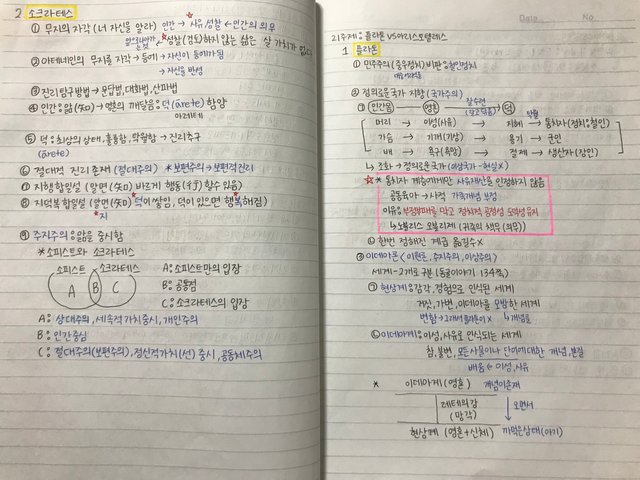 2 소크라테스
① 무지의 자각 (너 자신을 알라) 인간 → 사유, 성찰 ← 인간의 의무
성찰(검토)하지 않는 삶은 살 가치가 없다
② 아테네인의 무지를 자각 → 등에 → 자신이 등에가 됨
→ 자신을 반성
③ 진리탐구방법 → 문답법, 대화법, 산파법
④ 인간: 앎(知) → 영혼의 깨달음: 덕(ārete) 함양
아레테
⑤ 덕: 최상의 상태, 훌륭함, 탁월함 → 진리추구
(ārete)
⑥ 절대적 진리 존재 (절대주의) * 보편주의 → 보편적 진리
⑦ 지행합일설 (알면(知) 바르게 행동(行)할 수 있음)
⑧ 지덕복합일설 (알면(知) 덕이 쌓임, 덕이 있으면 행복해짐)
*지
⑨ 주지주의: 앎을 중시함
*소피스트와 소크라테스
소피스트 소크라테스
A B C
A: 소피스트만의 입장
B: 공통점
C: 소크라테스의 입장
A: 상대주의, 세속적가치중시, 개인주의
B: 인간중심
C: 절대주의(보편주의), 정신적가치(선) 중시, 공동체주의
2) 주제: 플라톤 VS 아리스토텔레스
1 플라톤
① 민주주의(중우정치) 비판: 철인정치
② 정의로운 국가 지향 (국가주의)
⑦ 인간몸 → 영혼 → 덕
머리 → 이성(사유) → 지혜 → 통치자(정치: 철인)
가슴 → 기개(기상) → 용기 → 군인
배 → 욕구(욕망) → 절제 → 생산자(장인)
↳ 조화 → 정의로운 국가 (이상국가-현실X)
* 통치자 계층에게만 사유재산을 인정하지 않음
공동육아 → 사적 가족개념 부정
이유: 부정부패를 막고 정치적 공정성 도덕성 유지
↳ 노블리스 오블리제 (귀족의 책무(의무))
한번 정해진 계급 옮길수X
③ 이데아론 (이원론, 주지주의, 이상주의)
세계-2개로 구분 (동굴이야기 134쪽)
⑦ 현상계: 감각, 경험으로 인식된 세계
거짓, 가변, 이데아를 모방한 세계
↳ 개념X
이데아계: 이성, 사유로 인식되는 세계
참, 불변, 모든 사물이나 단어에 대한 개념, 본질
배움 ← 이성, 사유
* 이데아계 (영혼) 개념이 존재
레테의강
(망각)
오면서
현상계 (영혼+신체) 까먹은상태(아기)